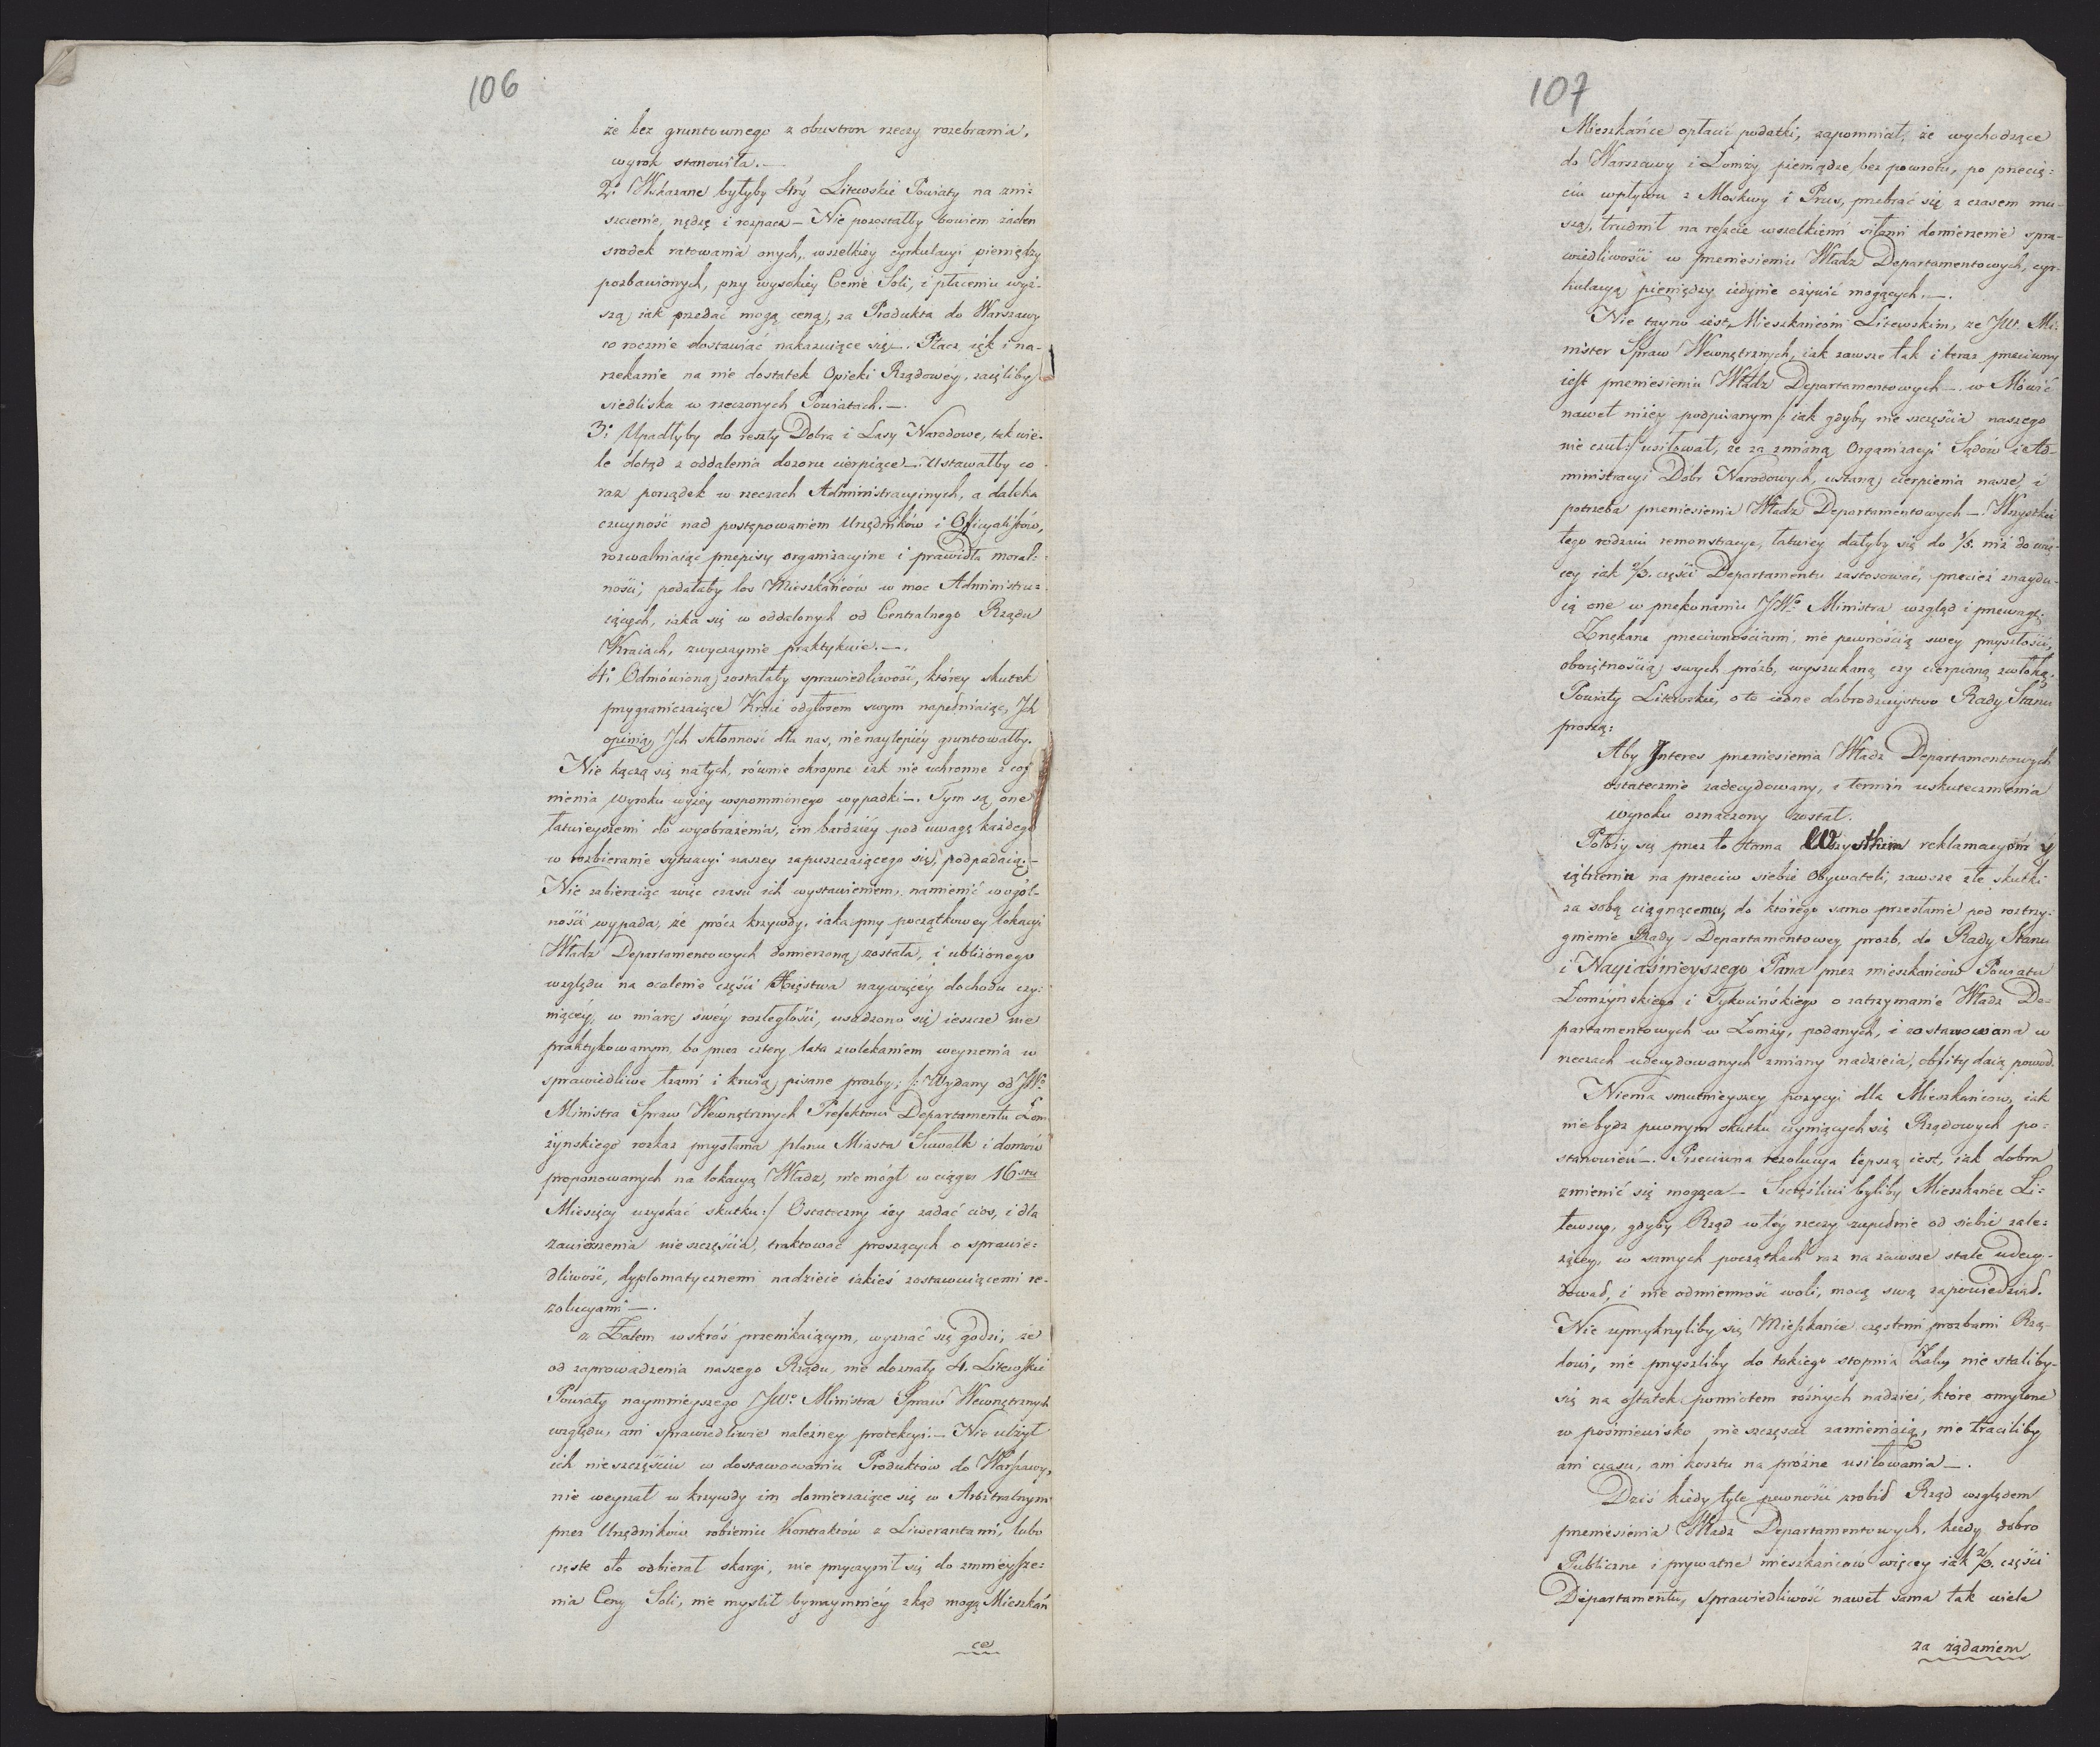 106
że bez gruntownego z obustron rzeczy rozebrania,
wyrok stanowiła.—
2.° Wskazane byłyby 4ry Litewskie Powiaty na zni=
szczenie, nędzę i rozpacz — Nie pozostałby bowiem żaden
srodek ratowania onych, wszelkiey cyrkulacyi pieniędzy
pozbawionych, przy wysokiey Cenie Soli, i płaceniu wyż-
szą iak przedać mogą ceną, za Produkta do Warszawy
co rocznie dostawiać nakazuiące się. Płacz, ięk i na-
rzekanie na nie dostatek Opieki Rządowéy, zaięliby
siedliska w rzeczonych Powiatach.—.
3.° Upadłyby do reszty Dobra i Lasy Narodowe, tak wie-
le dotąd z oddalenia dozoru cierpiące —. Ustawałby co
raz porządek w rzeczach Administracyinych, a daleka
czuyność nad postępowaniem Urzędników i Officyalistów,
rozwalniaiąc przepisy organizacyine i prawidła moral=
ności, podałaby los Mieszkańców w moc Administru=
iących, iaka się w oddalonych od Centralnego Rządu
Kraiach, zwyczaynie praktykuie.—.
4.° Odmówioną zostałaby sprawiedliwość, którey skutek
przygraniczaiące Kraie odgłosem swym napełniaiąc, Ich
opinią Ich skłonność dla nas, nie naylepiéy gruntowałby.
Nie kączą się na tych, równie okropne iak nie uchronne z cof
nienia Wyroku wyżey wspomnionego wypadki —. Tym są one
łatwieyszemi do wyobrażenia, im bardziéy pod uwagę każdego
w rozbieranie sytuacyi naszey zapuszczaiącego się, podpadaią.—
Nie zabieraiąc więc czasu ich wystawieniem, namienić w ogól-
ności wypada, że prócz krzywdy, iaka przy początkowey lokacyi
Władz Departamentowych domierzoną została, i ubliżonego
względu na ocalenie części Xięstwa naywięcéy dochodu czy=
niącéy, w miarę swéy rozległości, usadzono się ieszcze nie
praktykowanym, bo przez cztery lata zwlekaniem weyrzenia w
sprawiedliwe łzami i krwią pisane prozby; /: Wydany od JW°
Ministra Spraw Wewnętrznych Prefektowi Departamentu Łom
żynskiego rozkaz przysłania planu Miasta Suwałk i domów
proponowanych na lokacyą Władz, nie mógł w ciągu 16stu
Miesięcy uzyskać skutku:/ Ostateczny iey zadać cios, i dla
zawierzenia nieszczęścia, traktować proszących o sprawie=
dliwość, dyplomatycznemi nadzieie iakieś zostawuiącemi re-
zolucyami —.
z Żalem wskróś przenikaiącym, wyznać się godzi, że
od zaprowadzenia naszego Rządu, nie doznały 4. Litewskie
Powiaty naymnieyszego JW° Ministra Spraw Wewnętrznych
względu, ani sprawiedliwie należney protekcyi.— Nie ulżył
ich nieszczęściu w dostawowaniu Produktów do Warszawy,
nie weyrzał w krzywdy im domierzaiące się w Arbitralnym
przez Urzędników robieniu Kontraktów z Liwerantami, lubo
częste oto odbierał skargi, nie przyczynił się do zmnieysze=
nia Ceny Soli, nie myślił bynaymniéy zkąd mogą Mieszkań
ce
107
Mieszkańce opłacić podatki, zapomniał, że wychodzące
do Warszawy i Łomży pieniądze bez powrotu, po przecię=
ciu wpływu z Moskwy i Prus, przebrać się z czasem mu-
szą, trudnił na reszcie wszelkiemi siłami domierzenie spra-
wiedliwości w przeniesieniu Władz Departamentowych, cyr-
kulacyą pieniędzy iedynie ożywić mogących.—.
Nie tayno iest Mieszkańcóm Litewskim, że JW. Mi-
nister Spraw Wewnętrznych, iak zawsze tak i teraz przeciwny
iest przeniesieniu Władz Departamentowych —. w Mówić
nawet niżey podpisanym /: iak gdyby nie szczęścia naszego
nie czuł:/ usiłował, że za zmianą Organizacyi Sądów i Ad-
ministracyi Dobr Narodowych, ustaną cierpienia nasze, i
potrzeba przeniesienia Władz Departamentowych —. Wszystkie
tego rodzaiu remonstracye, łatwiey dałyby się do 1/3. niż do wię-
cey iak 2/3. części Departamentu zastosować, przecież znaydu-
ią one w przekonaniu JW° Ministra wzgląd i przewagę.
Znękane przeciwnościami, nie pewnością swey przyszłości,
oboiętnością swych próźb, wyszukaną czy cierpianą zwłoką,
Powiaty Litewskie, o to iedne dobrodzieystwo Rady Stanu
proszą:
Aby Interes przeniesienia Władz Departamentowych
ostatecznie zadecydowany, i termin uskutecznienia
wyroku oznaczony został.
Położy się przez to tama Wszystkim reklamacyóm y
iątrzeniu na przeciw siebie Obywateli, zawsze złe skutki
za sobą ciągnącemu, do którego samo przesłanie pod roztrzy-
gnienie Rady Departamentowey prozb, do Rady Stanu
i Nayiaśnieyszego Pana przez mieszkańców Powiatu
Łomżyńskiego i Tykocińskiego o zatrzymanie Władz De-
partamentowych w Łomży, podanych, i zostawowana w
rzeczach udecydowanych zmiany nadzieia, obfity daią powod.
Niema smutnieyszey pozycyi dla Mieszkańców, iak
nie bydz pewnym skutku czyniących się Rządowych po=
stanowień —. Przeciwna rezolucya lepszą iest, iak dobra
zmienić się mogąca — Szczęśliwi byliby Mieszkańce Li=
tewscy, gdyby Rząd w téy rzeczy zupełnie od siebie zale=
żącey, w samych początkach raz na zawsze stale udecy-
dował, i nie odmienność woli, mocą swą zapowiedział.
Nie uprzykrzyliby się Mieszkańce częstemi prozbami Rzą-
dowi, nie przyszliby do takiego stopnia Żalu, nie staliby-
się na ostatek pomiotem różnych nadziei, które omylone
w pośmiewisko nie szczęście zamieniaią, nie traciliby
ani czasu, ani kosztu na próżne usiłowania —.
Dziś kiedy tyle pewności zrobił Rząd względem
przeniesienia Władz Departamentowych, kiedy dobro
Publiczne i prywatne mieszkańców więcey iak 2/3. części
Departamentu, sprawiedliwość nawet sama tak wiele
za żądaniem